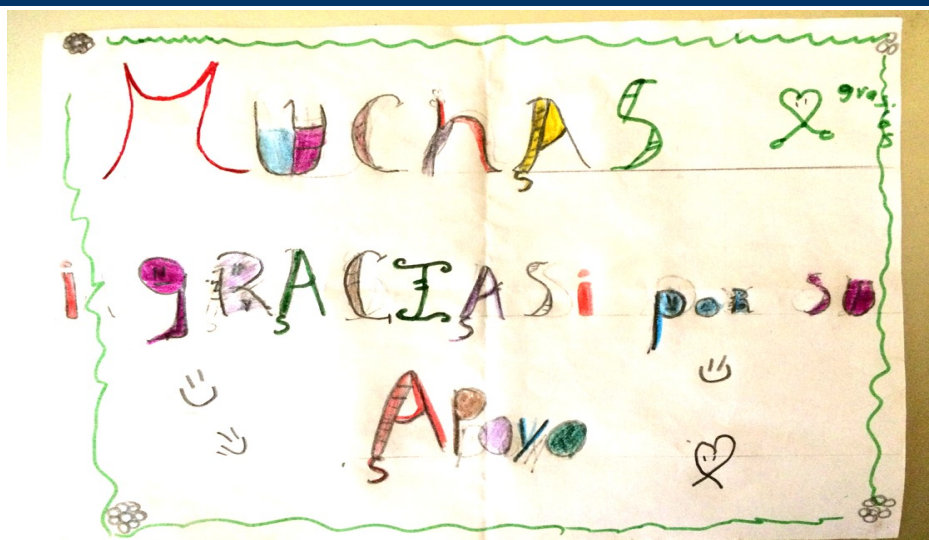 MUChAS
gracias
¡gRACIASi poR su
Apoyo